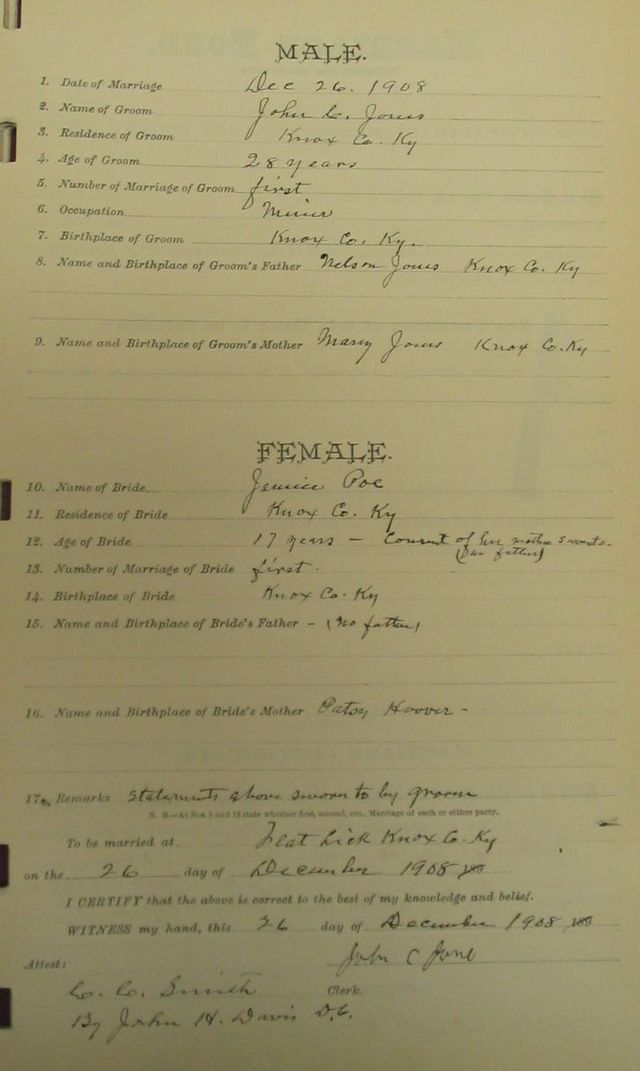 MALE.
1. Date of Marriage Dec 26. 1908
2. Name of Groom John C. Jones
3. Residence of Groom Knox Co. Ky
4. Age of Groom 28 years
5. Number of Marriage of Groom first
6. Occupation Miner
7. Birthplace of Groom Knox Co. Ky.
8. Name and Birthplace of Groom's Father Nelson Jones Knox Co. Ky
9. Name and Birthplace of Groom's Mother Mary Jones Knox Co. Ky
FEMALE.
10. Name of Bride Jennie Poe
11. Residence of Bride Knox Co. Ky
12. Age of Bride 17 years - Consent of her mother
(no father)
13. Number of Marriage of Bride first.
14. Birthplace of Bride Knox Co. Ky
15. Name and Birthplace of Bride's Father - (no father)
16. Name and Birthplace of Bride's Mother Patsy Hoover -
17. Remarks Statements above sworn to by groom
N. B.—At Nos 5 and 13 state whether first, second, etc., Marriage of each or either party.
To be married at Flat Lick Knox Co. Ky
on the 26 day of December 1908
I CERTIFY that the above is correct to the best of my knowledge and belief.
WITNESS my hand, this 26 day of December 1908
John C Jone
Attest:
C. C. Smith Clerk.
By John H. Davis D.C.